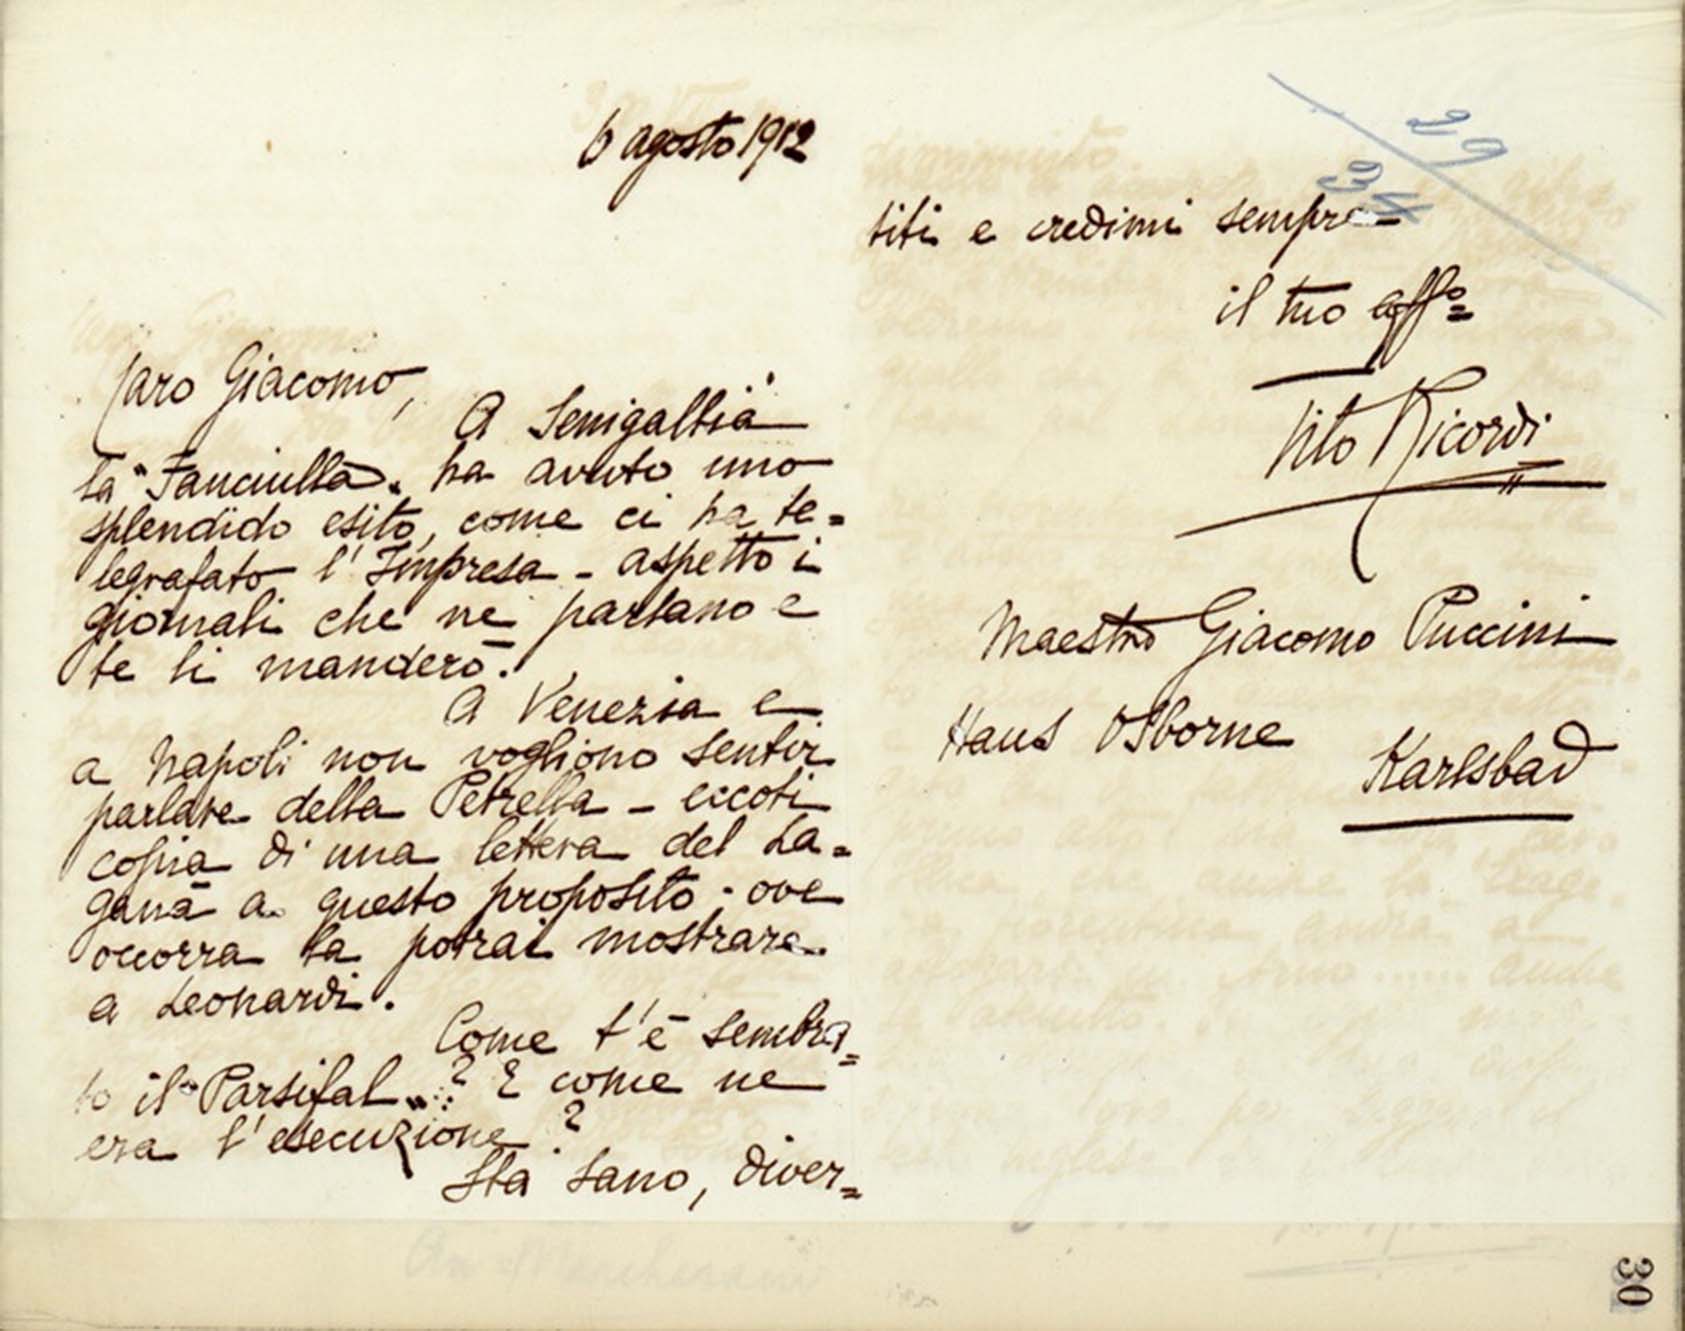 6 agosto 1912
Caro Giacomo,
A Senigallia
la "Fanciulla" ha avuto uno
splendido esito, come ci ha te=
legrafato l'Impresa - aspetto i
giornali che ne parlano e
te li manderò.
A Venezia e
a Napoli non vogliono sentir
parlare della Petrella - eccoti
copia di una lettera del La=
ganà a questo proposito - ove
occorra la potrai mostrare
a Leonardi.
Come t'è sembra=
to il "Parsifal"..? E come ne
era l'esecuzione?
Sta sano, diver=
titi e credimi sempre
il tuo affº
Tito Ricordi
Maestro Giacomo Puccini
Haus Osborne
Karlsbad
29
30